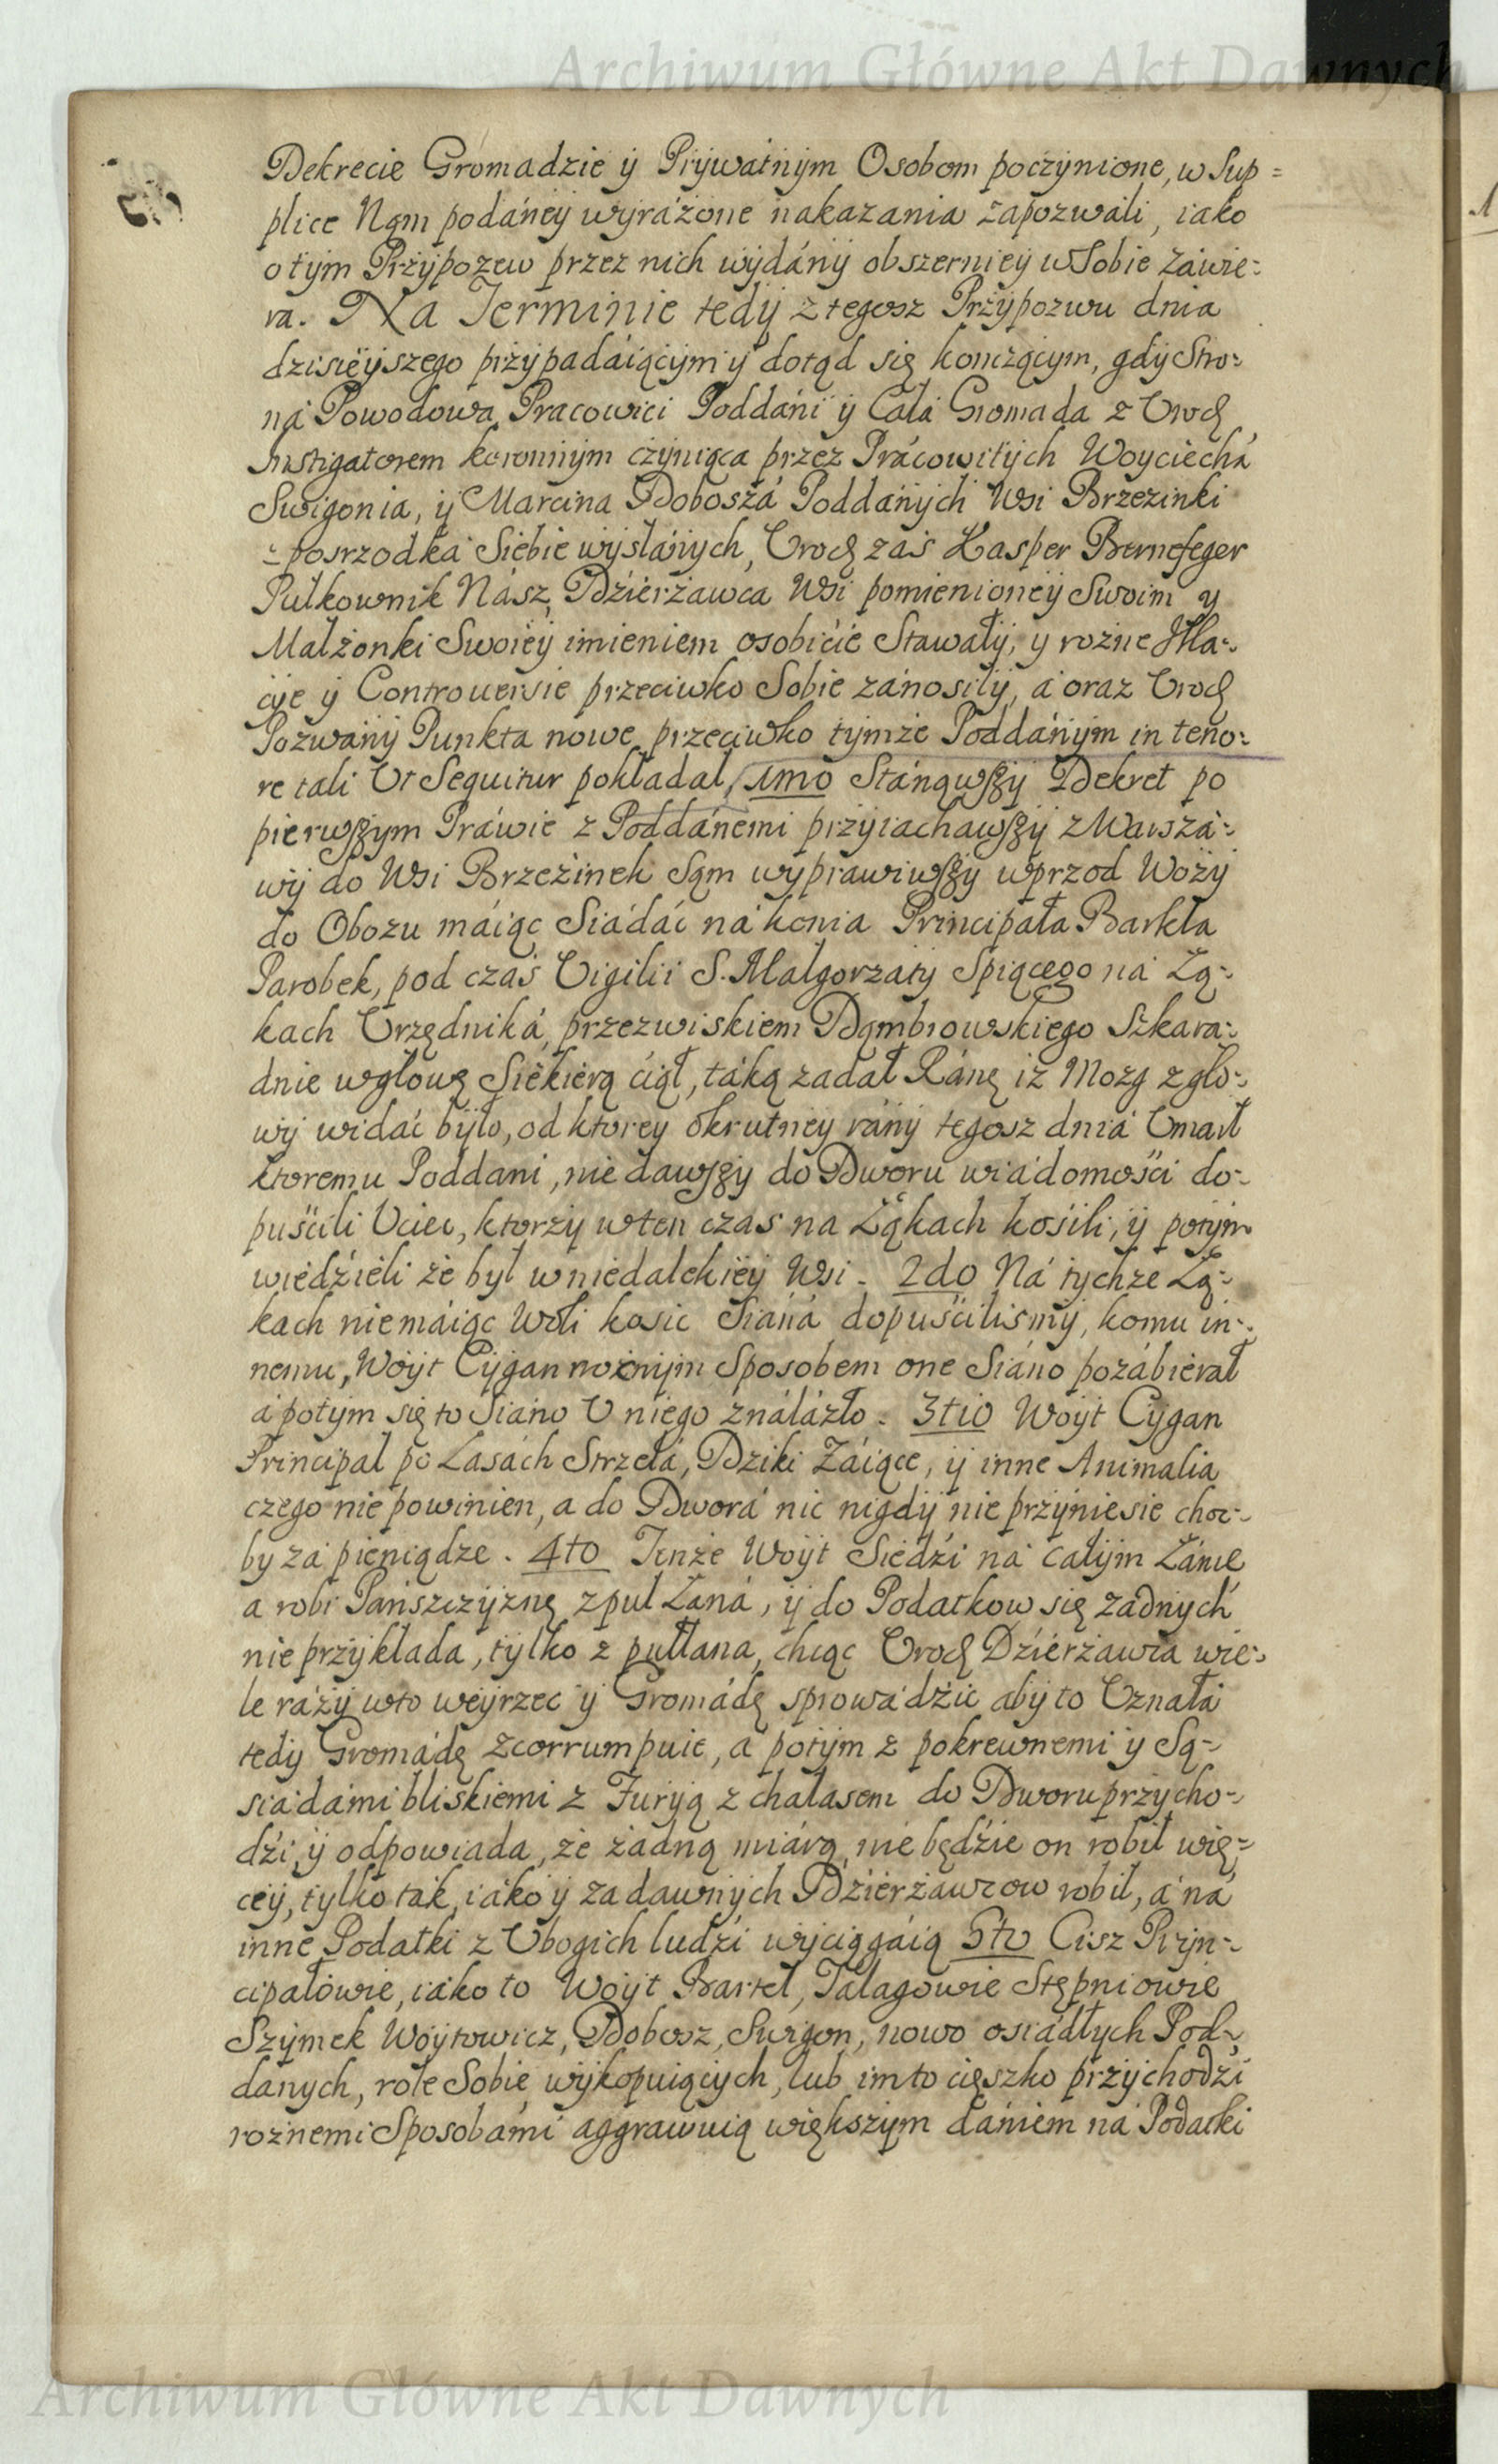 Archiwum Główne Akt Dawnych
Dekrecie Gromadzie ÿ Prÿwatnÿm Osobom poczÿnione, w Sup=
plice Nąm podánéÿ wÿráżone nakazania zapozwali, iako
o tÿm Przÿpozew przez nich wÿdánÿ obszerniéÿ w Sobie zawie:
ra. Na Terminie tedÿ z tegosz Przÿpozwu dnia
dzisiéÿszego przÿpadáiącÿm ÿ dotąd się konczącym, gdÿ Stro:
ná Powodowa Pracowici Poddáni ÿ Cała Gromada z Urod
Instigatorem koronnÿm czÿniąca przez Prácowitÿch Woyciechá
Swigonia, ÿ Marcina Doboszá Poddánÿch Wsi Brzezinki
z posrzodka Siebie wÿsłánÿch, Urod zaś Kasper Bernefeger
Pułkownik Nász, Dzierżawca Wsi pomienionéÿ Swoim y
Małżonki Swoiéÿ imieniem osobiście Stawałÿ, y rożne Illa:
cÿe ÿ Controuersie przeciwko Sobie zánosiłÿ, á oraz Urod
Pozwánÿ Punkta nowe przeciwko tÿmże Poddánÿm in teno:
re tali Ut Sequitur pokładał, 1mo Stánąwszÿ Dekret po
pierwszym Práwie z Poddánemi przÿiachawszÿ z Warszá:
wÿ do Wsi Brzezinek Sąm wÿprawiwszÿ wprzod Wozÿ
do Obozu máiąc Siádáć ná konia Principała Barkła
Parobek, pod czás Vigilii S. Małgorzatÿ Spiącego ná Łą:
kach Urzędniká, przezwiskiem Dąmbrowskiego Szkara:
dnie w głowę Siekierą ciął, táką zadał Ránę iż Mozg z gło:
wÿ widáć bÿło, od ktorey okrutnéy ránÿ tegosz dniá Umarł
ktoremu Poddani, nie dawszÿ do Dworu wiadomości do:
puścili Uciec, ktorzÿ w ten czas na Łąkach kosili, ÿ potÿm
wiedzieli że był w niedalekiéÿ Wsi. 2do Ná tychże Łą:
kach nie máiąc Woli kosic Siáná dopuścilismÿ, komu in:
nemu, Wóÿt Cÿgan rożnÿm Sposobem one Siáno pozábierał
á potÿm się to Siáno U niego ználázło. 3tio Woÿt Cÿgan
Principal po Lasách Strzela, Dziki Záiące, ÿ inne Animalia
czego nie powinien, a do Dworá nic nigdÿ nie przÿniesie choc:
by zá pieniądze. 4to Tenże Woÿt Siedźi ná całÿm Łánie
a robi Pánszczÿznę z puł Łaná, ÿ do Podatkow się żadnÿch
nie przÿkłada, tÿlko z pułłana, chcąc Urod Dzierżawca wie:
le rázÿ w to wéÿrzec ÿ Gromádę sprowádzić abÿ to Uznałá
tedÿ Gromádę zcorrumpuie, á potÿm z pokrewnemi ÿ Są:
siádámi bliskiemi z Furÿą z chałasem do Dworu przÿcho:
dźi, ÿ odpowiada, że żadną miárą nie będźie on robił wię:
céÿ, tÿlko tak, iáko ÿ za dawnÿch Dzierżawcow robił, á ná
inne Podatki z Ubogich ludźi wÿciągáią 5to Cisz Prÿn:
cipałowie, iáko to Woÿt Bartel, Tálagowie Stępniowie
Szÿmek Wóÿtowicz, Dobosz, Swigon, nowo osiádłÿch Pod:
danych, role Sobie wÿkopuiącÿch, lub im to cięszko przÿchodźi
rożnemi Sposobámi aggrawuią większÿm dániem ná Podatki
Archiwum Główne Akt Dawnych